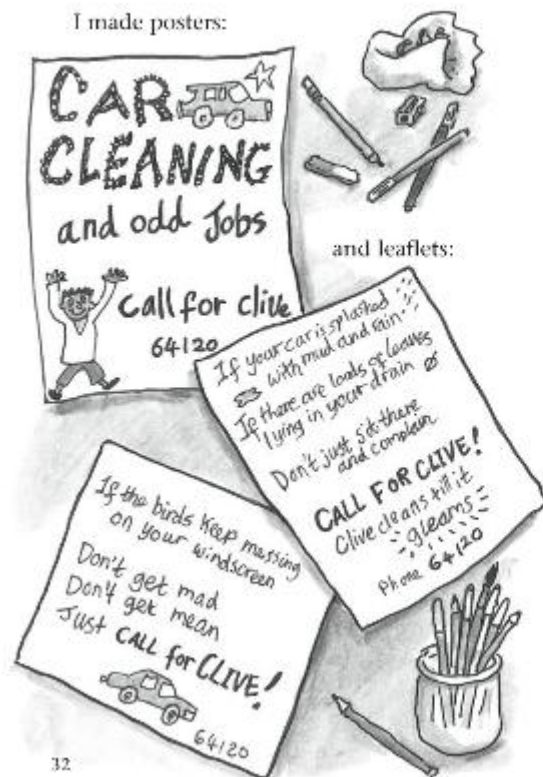 I made posters:
CAR
CLEANING
and odd Jobs
Call for clive
64120
and leaflets:
If your car is splashed
with mud and rain
If there are loads of leaves
lying in your drain
Don't just sit there
and complain
CALL FOR CLIVE!
Clive cleans till it
gleams
Phone 64120
If the birds keep messing
on your windscreen
Don't get mad
Don't get mean
Just CALL for CLIVE!
64120
32